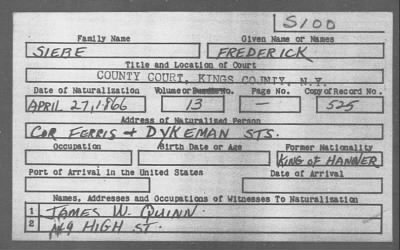 S100
Family Name Given Name or Names
SIEBE FREDERICK
Title and Location of Court
COUNTY COURT, KINGS COUNTY, N.Y.
Date of Naturalization Volume or Bundle No. Page No. Copy of Record No.
APRIL 27, 1866 13 — 525
Address of Naturalized Person
COR FERRIS + DYKEMAN STS.
Occupation Birth Date or Age Former Nationality
KING OF HANNER
Port of Arrival in the United States Date of Arrival
Names, Addresses and Occupations of Witnesses To Naturalization
1 JAMES W. QUINN.
2 HIGH ST.